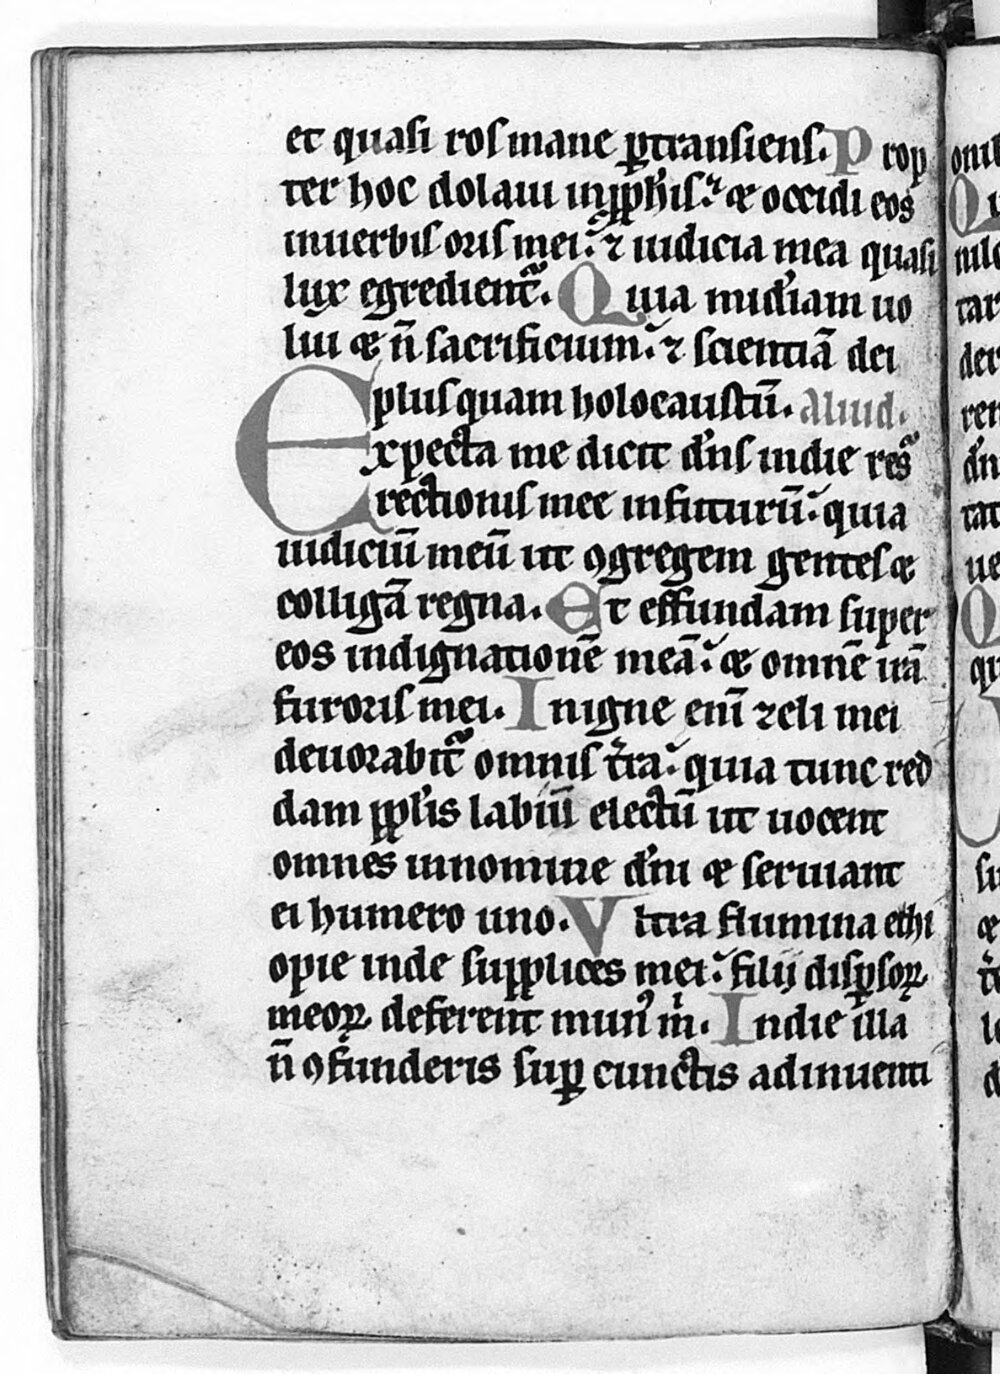 et quasi ros mane ꝑtransiens. Prop
ter hoc dolaui in ꝓph̄is. ⁊ occidi eos
in uerbis oris mei. ⁊ iudicia mea quasi
lux egredient᷑. Quia mid̾iam uo
lui et n̄ sacrificium. ⁊ scientiā dei
plus quam holocaustū. Aliud.
Expecta me dicit dn̄s in die res᷑
rectionis mee in futurū. quia
iudiciū meū ut ꝯgregem gentes et
colligā regna. Et effundam super
eos indignationē meā. et omnē irā
furoris mei. In igne eni᷑ zeli mei
deuorabit᷑ omnis t̄ra. quia tunc red
dam ppl̄is labiū electū ut uocent
omnes in nomine dn̄i et seruiant
ei humero uno. Vltra flumina ethi
opie inde supplices mei. filij disꝑsoꝝ
meoꝝ deferent mun᷒ m̄. In die illa
n̄ ꝯfunderis suꝑ cunctis adinuenti